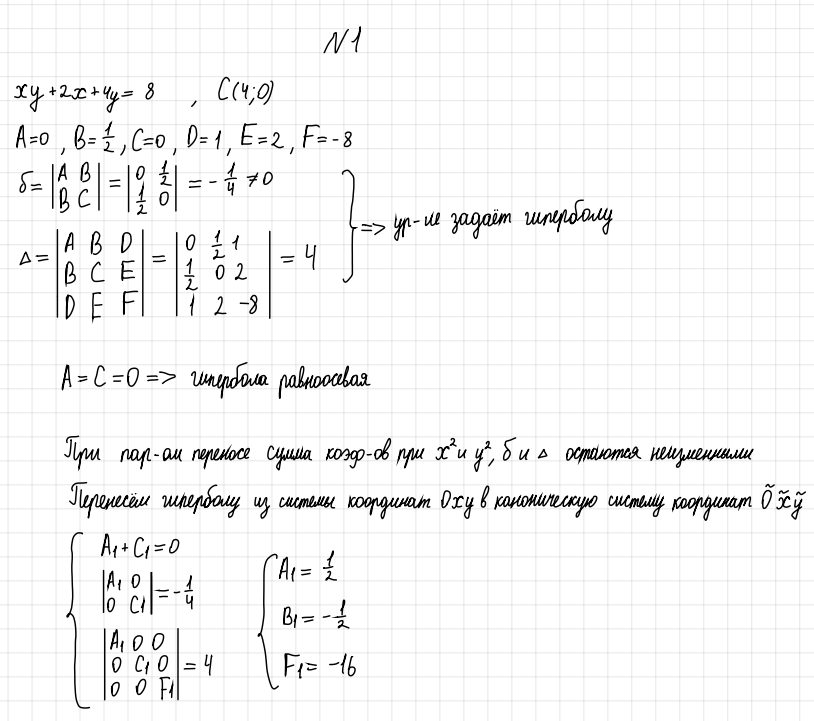 N1
xy+2x+4y= 8 , C(4;0)
A=0 , B= 1/2 , C=0 , D=1 , E=2 , F=-8
δ= |A B; B C| = |0 1/2; 1/2 0| = - 1/4 ≠0
Δ = |A B D; B C E; D E F| = |0 1/2 1; 1/2 0 2; 1 2 -8| = 4
} => ур-ие задаёт гиперболу
A=C=0 => гипербола равноосевая
При пар-ом переносе сумма коэф-ов при x² и y², δ и Δ остаются неизменными
Перенесём гиперболу из системы координат Oxy в каноническую систему координат Õx̃ỹ
{ A₁+C₁=0
|A₁ 0; 0 C₁| = - 1/4
|A₁ 0 0; 0 C₁ 0; 0 0 F₁| = 4
{ A₁= 1/2
B₁= - 1/2
F₁= -16